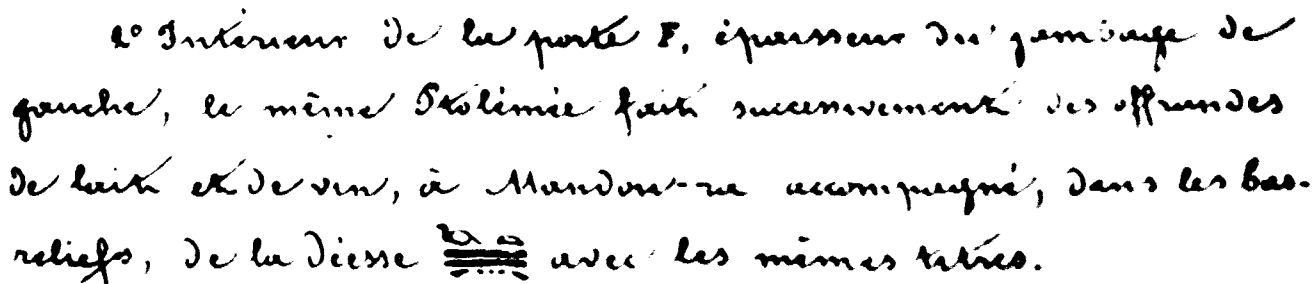 2° Intérieur de la porte F, épaisseur du jambage de
gauche, le même Ptolémée fait successivement des offrandes
de lait et de vin, à Mandou-ra accompagné, dans les bas-
reliefs, de la déesse avec les mêmes titres.